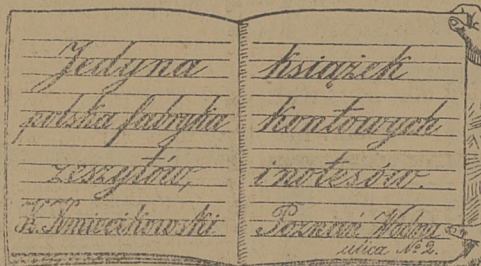 Jedyna
polska fabryka
zeszytów,
K. Kmiecikowski
książek
kontowych
i notesów.
Poznań Wodna
ulica № 2.